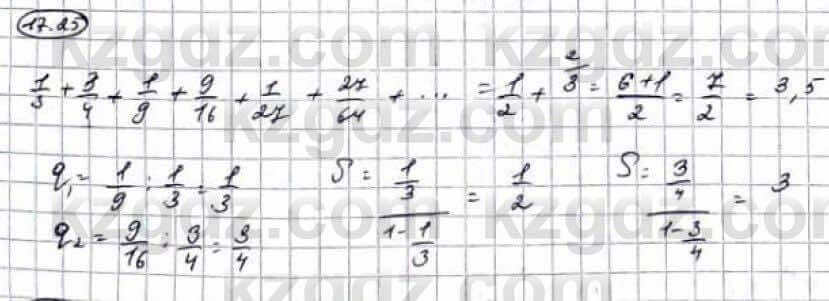 17.25
1/3 + 3/4 + 1/9 + 9/16 + 1/27 + 27/64 + ... = 1/2 + 3^(2/ = (6+1)/2 = 7/2 = 3,5
q₁ = 1/9 : 1/3 = 1/3   S = (1/3)/(1 - 1/3) = 1/2   S = (3/4)/(1 - 3/4) = 3
q₂ = 9/16 : 3/4 = 3/4
kzgdz.com